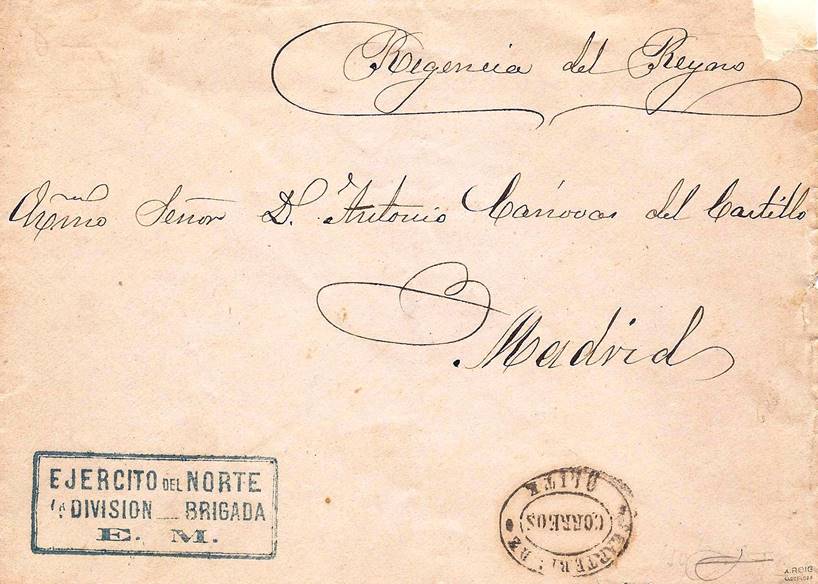 Regencia del Reyno
Exmo Señor D. Antonio Cánovas del Castillo
Madrid
EJERCITO DEL NORTE
1A DIVISION BRIGADA
E. M.
OLITE
CORREOS
CARTERIA
A. ROIG